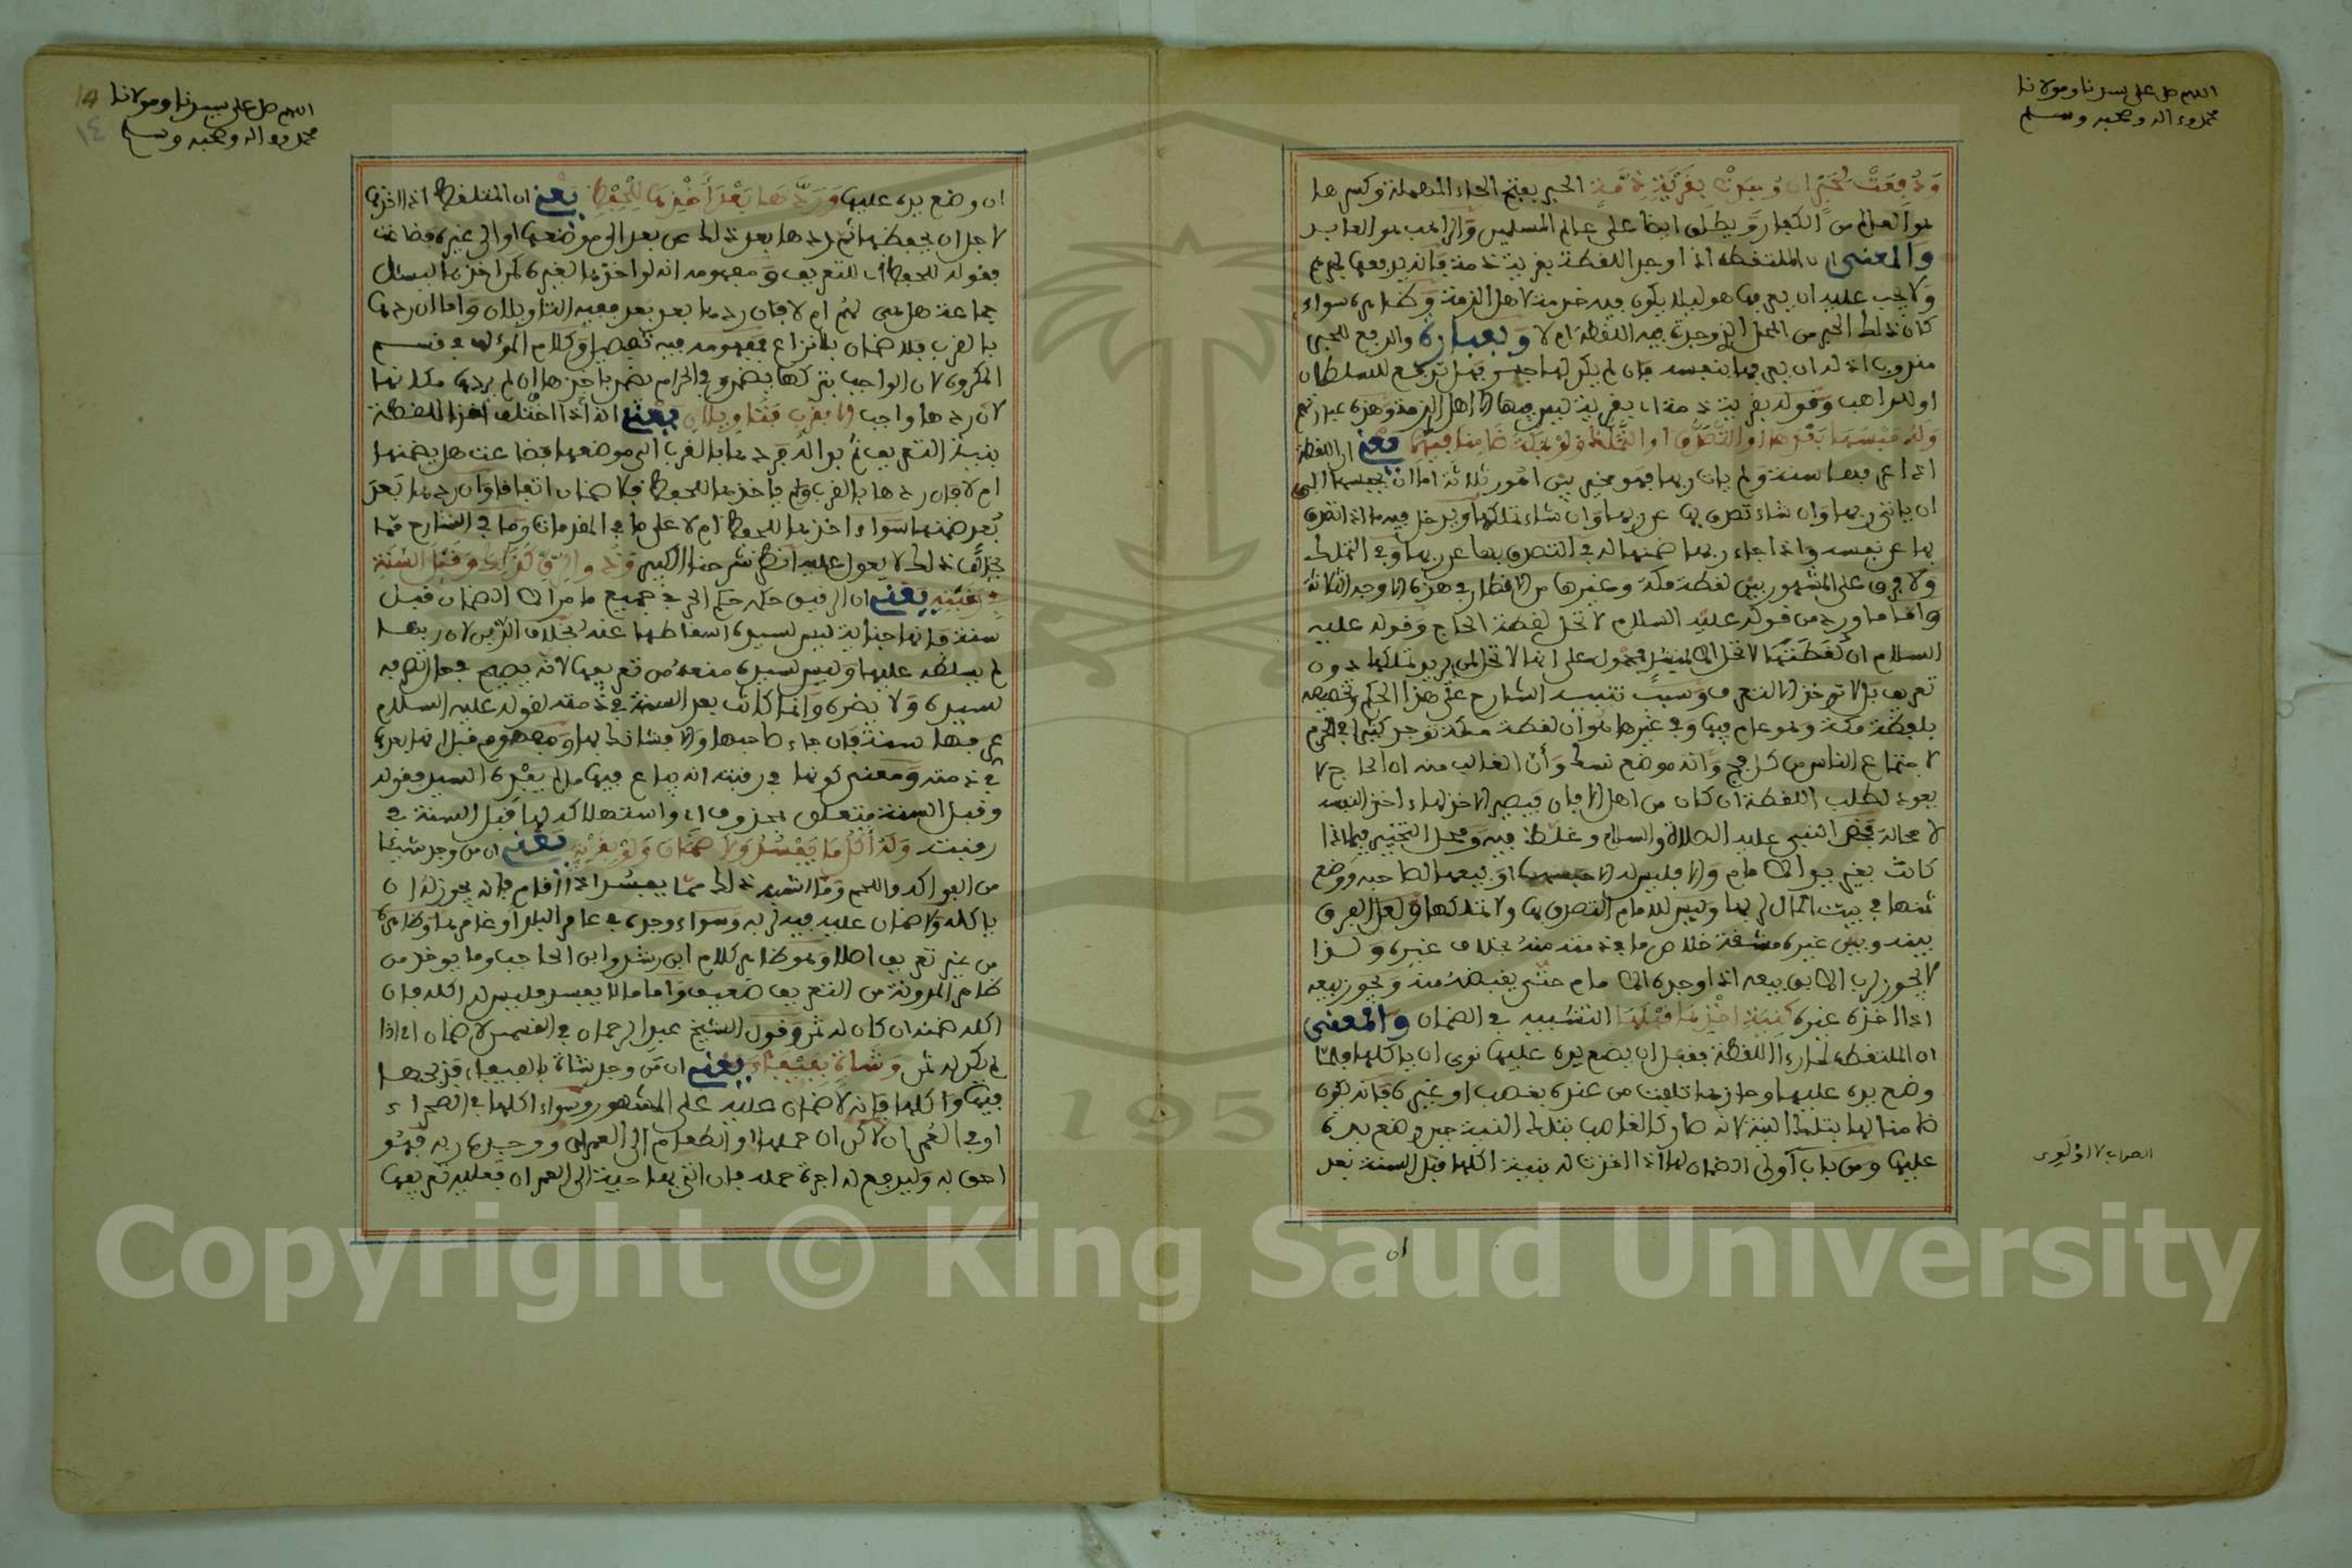 اللهم صل على سيدنا ومولانا
محمد وءاله وصحبه وسلم
وَدُفِعَتْ لِحَبْرٍ ان وُجِدَتْ بِقَرْيَةِ ذِمَّةٍ الحبر بفتح الحاء المهملة وكسرها
هو العالم من الكفار ويطلق ايضا على عالم المسلمين والراهب هو العابد
والمعنى ان الملتقط اذا وجد اللقطة بقرية ذمة فانه يدفعها لحبرهم
ولا يجب عليه ان يعرفها هو ليلا يكون فيه خدمة لاهل الذمة وظاهره سواء
كان ذلك الحبر من المحل الذي وجدت فيه اللقطة ام لا وبعبارة والدفع للحبر
مندوب اذ له ان يعرفها بنفسه فان لم يكن لها حبر فهل تدفع للسلطان
او للراهب وقوله بقرية ذمة اي بقرية ليس فيها الا اهل الذمة وهذه عبارتهم
وَلَهُ حَبْسُهَا بَعْدَهَا او التَّصَدُّقُ او التَّمَلُّكُ وَلَوْ بِمَكَّةَ ضَامِنًا فِيهِمَا يعني ان اللقطة
اذا عرفها سنة ولم يات ربها فهو مخير بين امور ثلاثة اما ان يحبسها الى
ان ياتي ربها وان شاء تصدق بها عن ربها وان شاء تملكها ويدخل فيه ما اذا تصدق
بها عن نفسه واذا جاء ربها ضمنها له في التصدق بها عن ربها وفي التملك
ولا فرق على المشهور بين لقطة مكة وغيرها من الاقطار في هذه الاوجه الثلاثة
واما ما ورد من قوله عليه السلام لا تحل لقطة الحاج وقوله عليه
السلام ان لقطتها لا تحل الا لمنشد فمحمول على انها لا تحل لمن يريد تملكها دون
تعريف بل لا توخذ الا للتعريف وسبب تنبيه الشارع على هذا الحكم وتخصيصه
بلقطة مكة وهو عام فيها وفي غيرها هو ان لقطة مكة توجد كثيرا في الحرم
لاجتماع الناس من كل فج وانه موضع نسك وأن الغالب منه ان الحاج لا
يعود لطلب اللقطة ان كان من اهل الافاق فيصير الاخذ لها اخذ لنفسه
لا محالة فحض النبي عليه الصلاة والسلام وغلظ فيه ومحل التخيير فيما اذا
كانت بغير يد الامام والا فليس له الا حبسها او بيعها لصاحبها ووضع
ثمنها في بيت المال لربها وليس للامام التصدق بها ولا تملكها ولعل الفرق
بينه وبين غيره مشقة خلاص ما في ذمته منه بخلاف غيره ولذا
لا يجوز لرب الابق بيعه اذا وجده الامام حتى يقبضه منه ويجوز بيعه
اذا اخذه غيره كَنِيَّةِ اخْذِهَا قَبْلَهَا التشبيه في الضمان والمعنى
ان الملتقط لما رءا اللقطة فقبل ان يضع يده عليها نوى ان ياكلها فلما
وضع يده عليها وحازها تلفت من عنده بغصب او غيره فانه يكون
ضامنا لها بتلك النية لانه صار كالغاصب بتلك النية حين وضع يده
عليها ومن باب أولى الضمان لها اذا احدث له بنية اكلها قبل السنة بعد
ان
اللهم صل على سيدنا ومولانا
محمد وءاله وصحبه وسلم
١٤
ان وضع يده عليها وَرَدِّهَا بَعْدَ أَخْذِهَا لِلْحِفْظِ يعني ان الملتقط اذا اخذها
لاجل ان يحفظها ثم ردها بعد ذلك عن بعد الى موضعها او الى غيره فضاعت
فقوله للحفظ اي للتعريف ومفهومه انه لو اخذها لغيره كمن اخذها ليسئل
جماعة هل هي لهم ام لا فان ردها بعد بعد ففيه التاويلان واما ان ردها
بالقرب فلا ضمان بلا نزاع فمفهومه فيه تفصيل وكلام المؤلف في قسم
المكروه لان الواجب بتركها يضمن وفي الحرام يضمن باخذها ان لم يردها مكانها
لان ردها واجب الا بِقُرْبٍ فَتَاوِيلَانِ يعني انه اذا اختلف اخذ اللقطة
بنية التعريف ثم بدا له فردها بالقرب الى موضعها فضاعت هل يضمنها
ام لا فان ردها بالقرب ولم ياخذها للحفظ فلا ضمان اتفاقا وان ردها بَعْدَ
بُعْدٍ ضمنها سواء اخذها للحفظ ام لا على ما في المقدمات وما في الشارح مما
يخالف ذلك لا يعول عليه انظر شرحنا الكبير وَذُو الرِّقِّ كَذَلِكَ وَقَبْلَ السَّنَةِ
فِي رَقَبَتِهِ يعني ان الرقيق حكمه حكم الحر في جميع ما مر الا الضمان قبل
سنة فانها جناية ليس لسيده اسقاطها عنه بخلاف الدين لان ربها
لم يسلطه عليها وليس لسيده منعه من تعريفها لانه يصح في حال تصرفه
لسيده ولا يضره وانما كانت بعد السنة في ذمته لقوله عليه السلام
عرفها سنة فان جاء صاحبها والا فشانك بها ومفهوم قبل انها بعدها
في ذمته ومعنى كونها في رقبته انه يباع فيها ما لم يفده السيد فقوله
وقبل السنة متعلق بمحذوف اي واستهلاكه لها قبل السنة في
رقبته وَلَهُ أَكْلُ مَا يَفْسُدُ وَلَا ضَمَانَ وَلَوْ بِقَرْيَةٍ يعني ان من وجد شيئا
من الفواكه واللحم وما اشبه ذلك مما يفسد اذا أقام فانه يجوز له ان
ياكله ولا ضمان عليه فيه لربه وسواء وجده في عامر البلد أو غامرها وظاهره
من غير تعريف اصلا وهو ظاهر كلام ابن رشد وابن الحاجب وما يوخذ من
ظاهر المدونة من التعريف ضعيف واما ما لا يفسد فليس له اكله فان
اكله ضمنه ان كان له ثمن وقول الشيخ عبد الرحمان في القسمين لا ضمان اي اذا
لم يكن له ثمن وَشَاةٍ بِفَيْفَاءَ يعني ان من وجد شاة بالفيفاء فذبحها
فيها وأكلها فانه لا ضمان عليه على المشهور وسواء اكلها في الصحراء
او في العمران لاكن ان حملها او الطعام الى العمران ووجده ربه فهو
احق به وليدفع له اجرة حمله فان اتى بها حية الى العمران فعليه تعريفها